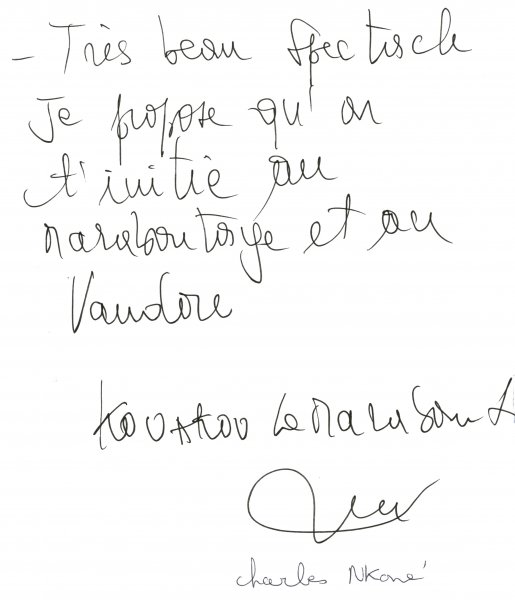 - Très beau Spectisch
Je propose qu'on
t'initie au
maraboutage et au
Vaudou
KOUAKOU Le Marabout
charles NKoné